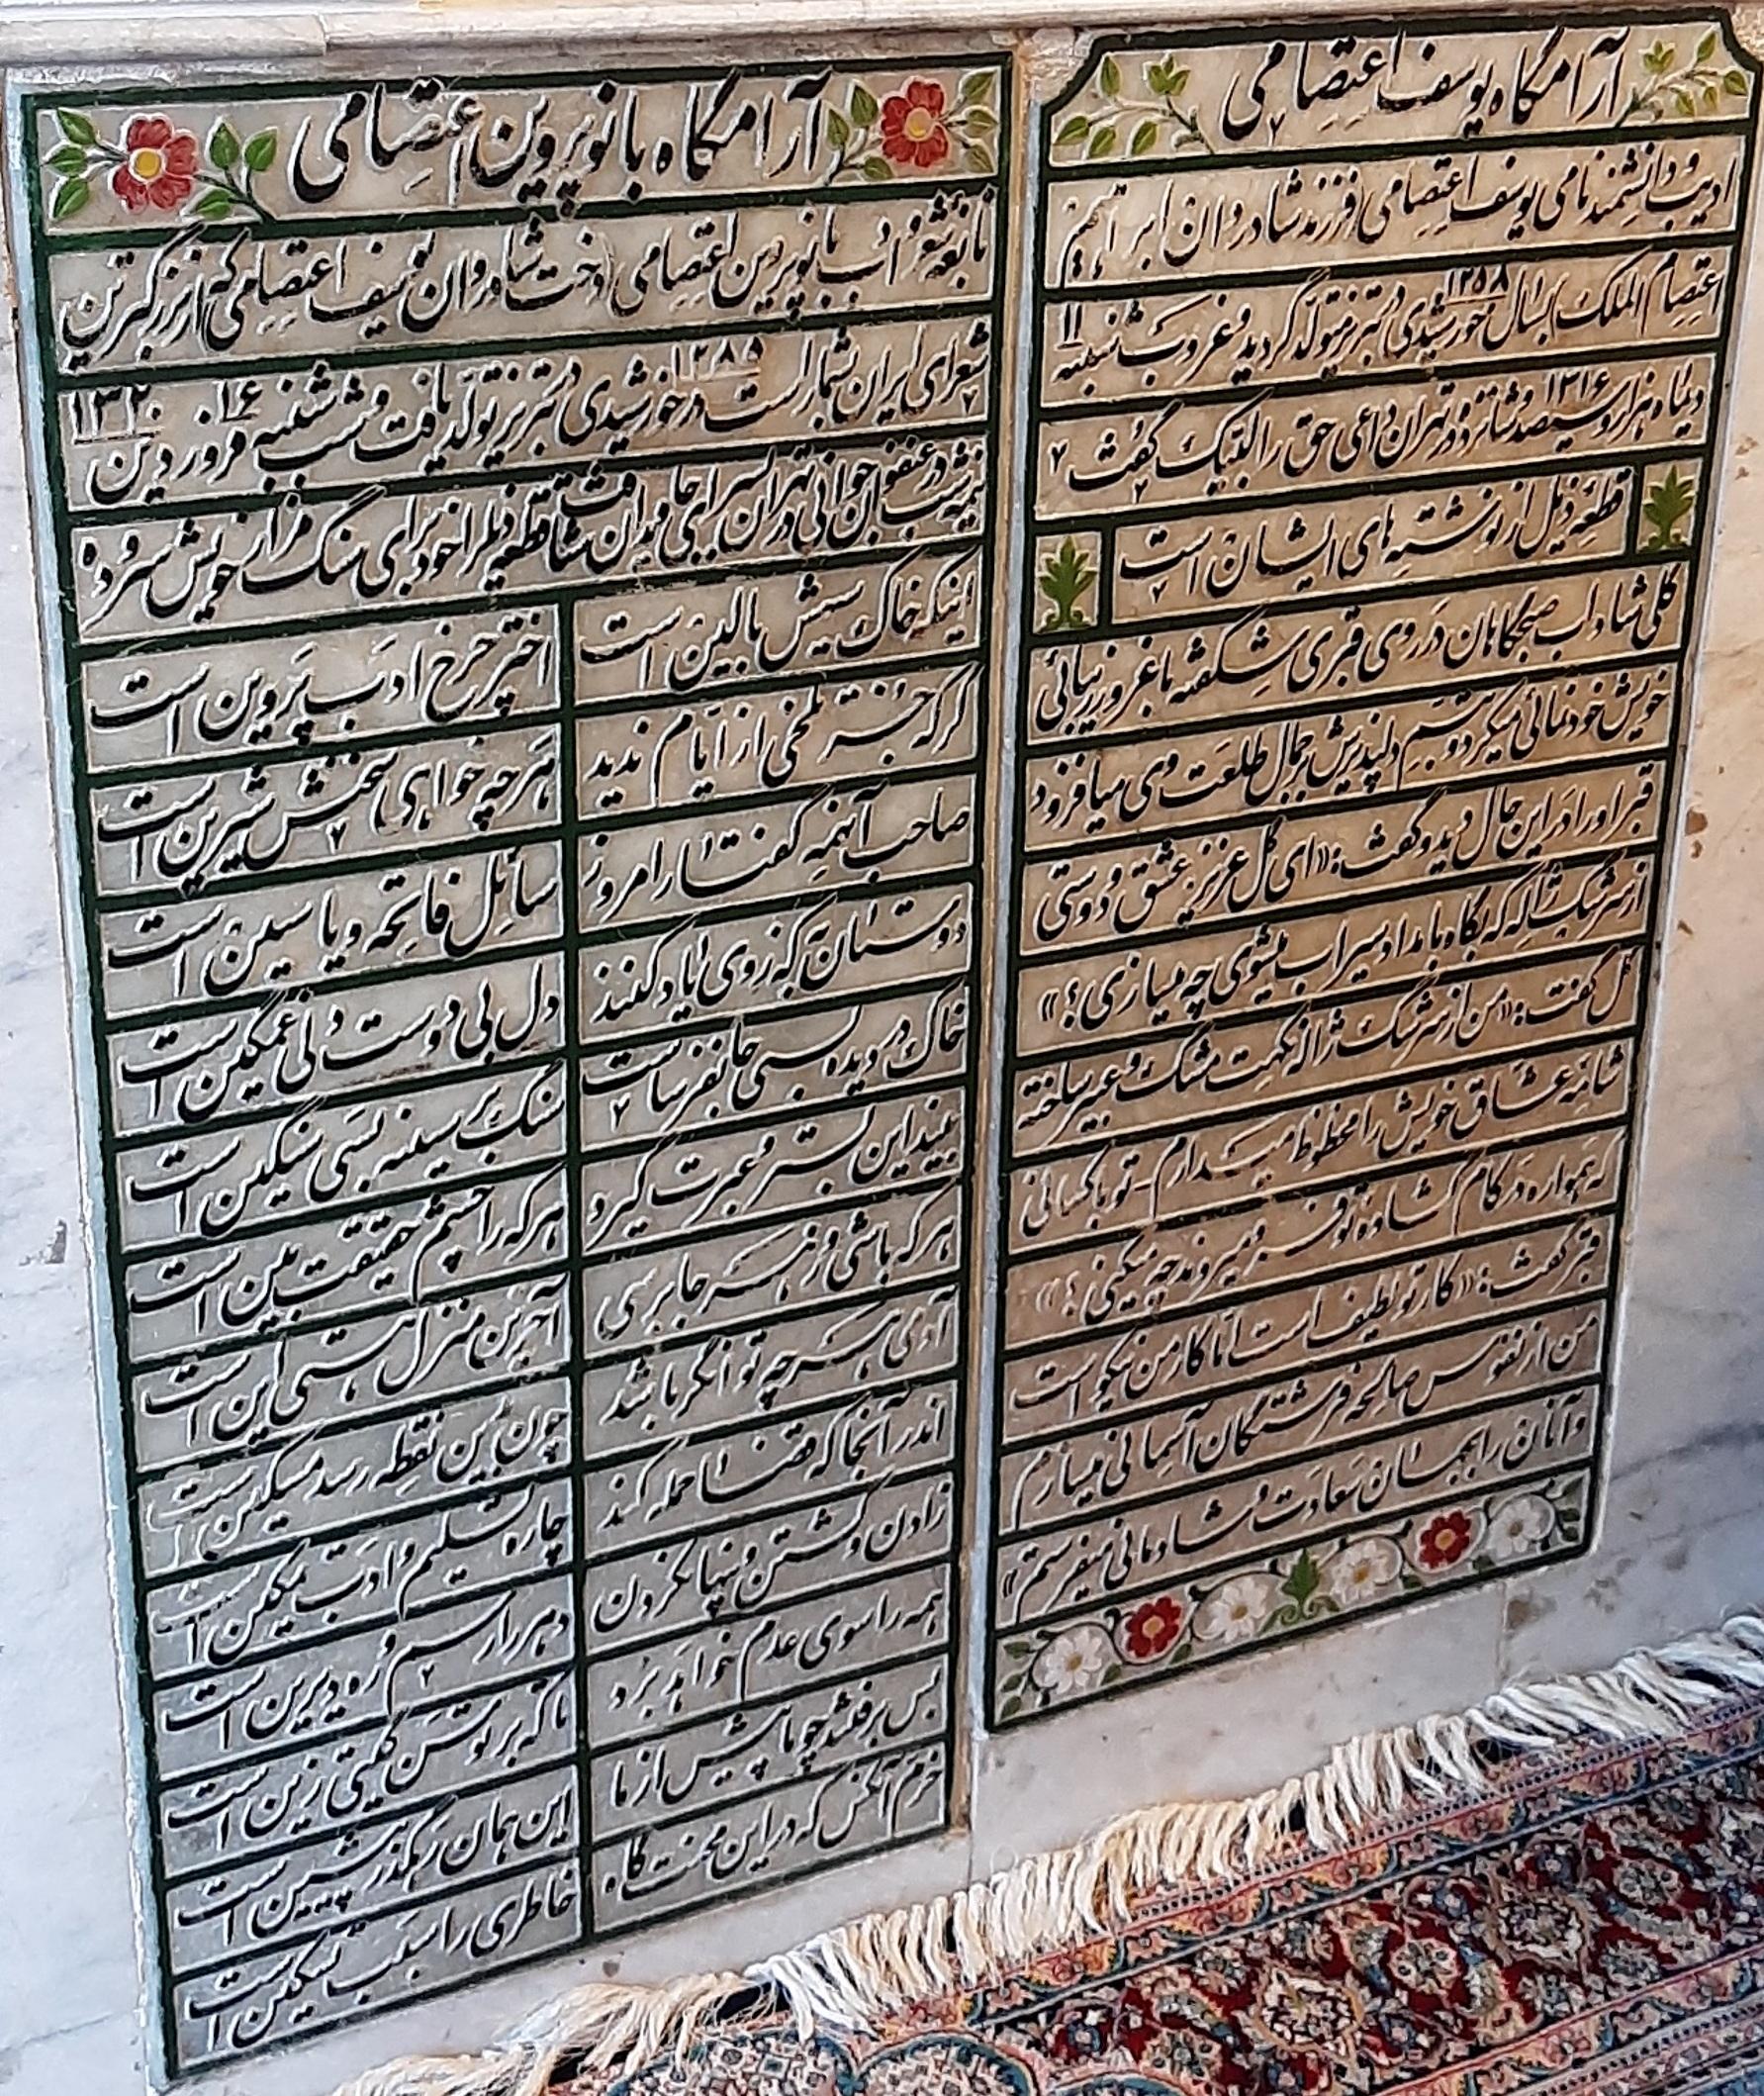 آرامگاه یوسف اعتصامی
ادیب و دانشمند نامی یوسف اعتصامی فرزند شادروان ابراهیم
اعتصام الملک بسال ۱۲۵۸ خورشیدی در تبریز متولد گردید و غروب شنبه ۱۱
دیماه هزار و سیصد و شانزده ۱۳۱۶ در تهران داعی حق را لبیک گفت
قطعه ذیل از نوشته های ایشان است
گلی شاداب صبحگاهان در روی قبری شکفته با غرور زیبائی
خویش خودنمائی میکرد و تبسم دلپذیرش بر جمال طلعت وی میافزود
قبر او را در این حال دید و گفت: «ای گل عزیز عشق و دوستی
از سرشک ژاله که بگاه بامداد سیراب میشوی چه میسازی؟»
گل گفت: «من از سرشک ژاله نکهت مشک و عبیر ساخته
شامه عشاق خویش را محظوظ میدارم - تو با کسانی
که همواره در کام گشاده تو فرو میروند چه میکنی؟»
قبر گفت: «کار تو لطیف است اما کار من نیکو است
من از نفوس صالحه فرشتگان آسمانی میسازم
و آنان را بجهان سعادت و شادمانی میفرستم»
آرامگاه بانو پروین اعتصامی
نابغه شعر و ادب بانو پروین اعتصامی دخت شادروان یوسف اعتصامی که از بزرگترین
شعرای ایران بشمار است در ۱۲۸۵ خورشیدی در تبریز تولد یافت و شب شنبه ۱۶ فروردین ۱۳۲۰
نیمه شب در عنفوان جوانی در تهران بسرای جاویدان شتافت قطعه ذیل را خود برای سنگ مزار خویش سروده
اینکه خاک سیهش بالین است
اختر چرخ ادب پروین است
گرچه جز تلخی از ایام ندید
هر چه خواهی سخنش شیرین است
صاحب آنهمه گفتار امروز
سائل فاتحه و یاسین است
دوستان به که ز وی یاد کنند
دل بی دوست دلی غمگین است
خاک در دیده بسی جانفرساست
سنگ بر سینه بسی سنگین است
بیند این بستر و عبرت گیرد
هر که را چشم حقیقت بین است
هر که باشی و ز هر جا برسی
آخرین منزل هستی این است
آدمی هر چه توانگر باشد
چون بدین نقطه رسد مسکین است
اندر آنجا که قضا حمله کند
چاره تسلیم و ادب تمکین است
زادن و کشتن و پنهان کردن
دهر را رسم و ره دیرین است
همه را سوی عدم خواهد برد
تا که بر توسن گیتی زین است
بس برفتند چو ما پیش از ما
این همان رهگذر پیشین است
خرم آنکس که در این محنت گاه
خاطری را سبب تسکین است